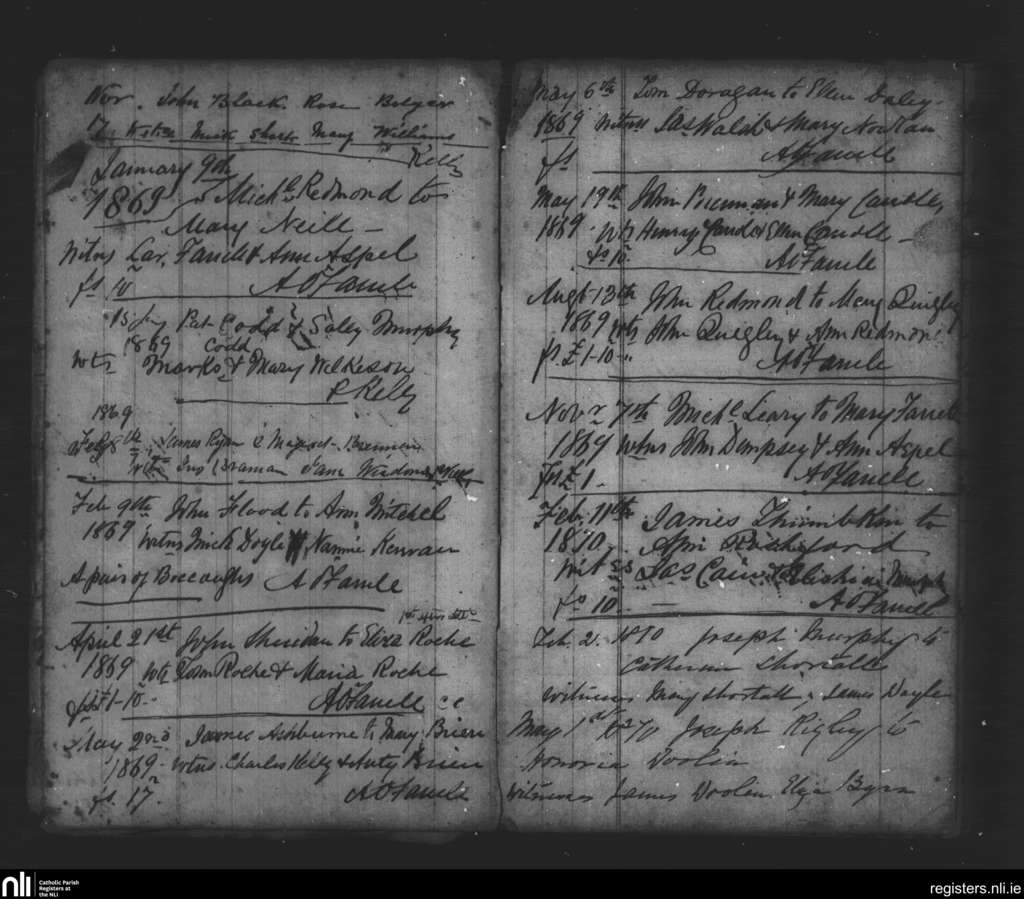 Nov. John Black. Rose Bolger
17 Wtns Mick Mary Williams
Kelly
January 9th
1869 Michl Redmond to
Mary Neill -
Witns Lar. Farrell & Ann Aspel
fs 10 A O'Farrell
15 Jny Pat Codd & Sally Murphy
1869 Codd
Wtn Marks & Mary Wilkison
P Kelly
1869
Feby 8th James Ryan & Margaret Brennan
Wtn Jas Branan
Feb. 9th John Flood to Ann Mitchel
1869 Witns Mick Doyle Nannie Kerwan
A pair of Boccoughs A O'Farrell
April 21st John Sheridan to Eliza Roche
1869 Wts Tom Roche & Maria Roche
fs £1-10.. A O'Farrell cc
May 2nd James Ashburne to Mary Brien
1869. Wtns. Charles Kelly & Anty Brien
fs. 17. A O'Farrell
May 6th Tom Doragan to Ellen Daley.
1869 Witns Jas Walsh & Mary Nowlan
fs A O'Farrell
May 19th John Brennan & Mary Caudle,
1869. Wts Henry Caudle & Ellen Caudle -
fs 10. A O'Farrell
Augt 13th John Redmond to Mary Quigley
1869 Wts John Quigley & Ann Redmond
fs. £1-10-.. A O'Farrell
Novr 7th Michl Leary to Mary Farrell
1869 Wtns John Dempsey & Ann Aspel
fs £1. A O'Farrell
Feb. 11th James to
1870. Ann Rochford
Witss Jas Cain & Murphy
fs 10. - A O'Farrell
Feb. 2. 1870 Joseph Murphy to
Catherine Shortall
Witnesses Mary Shortall, James Doyle
May 1st 1870 Joseph Rigley to
Honoria Doolin
Witnesses James Doolen Eliza Byrn
nli
Catholic Parish
Registers at
the NLI
registers.nli.ie